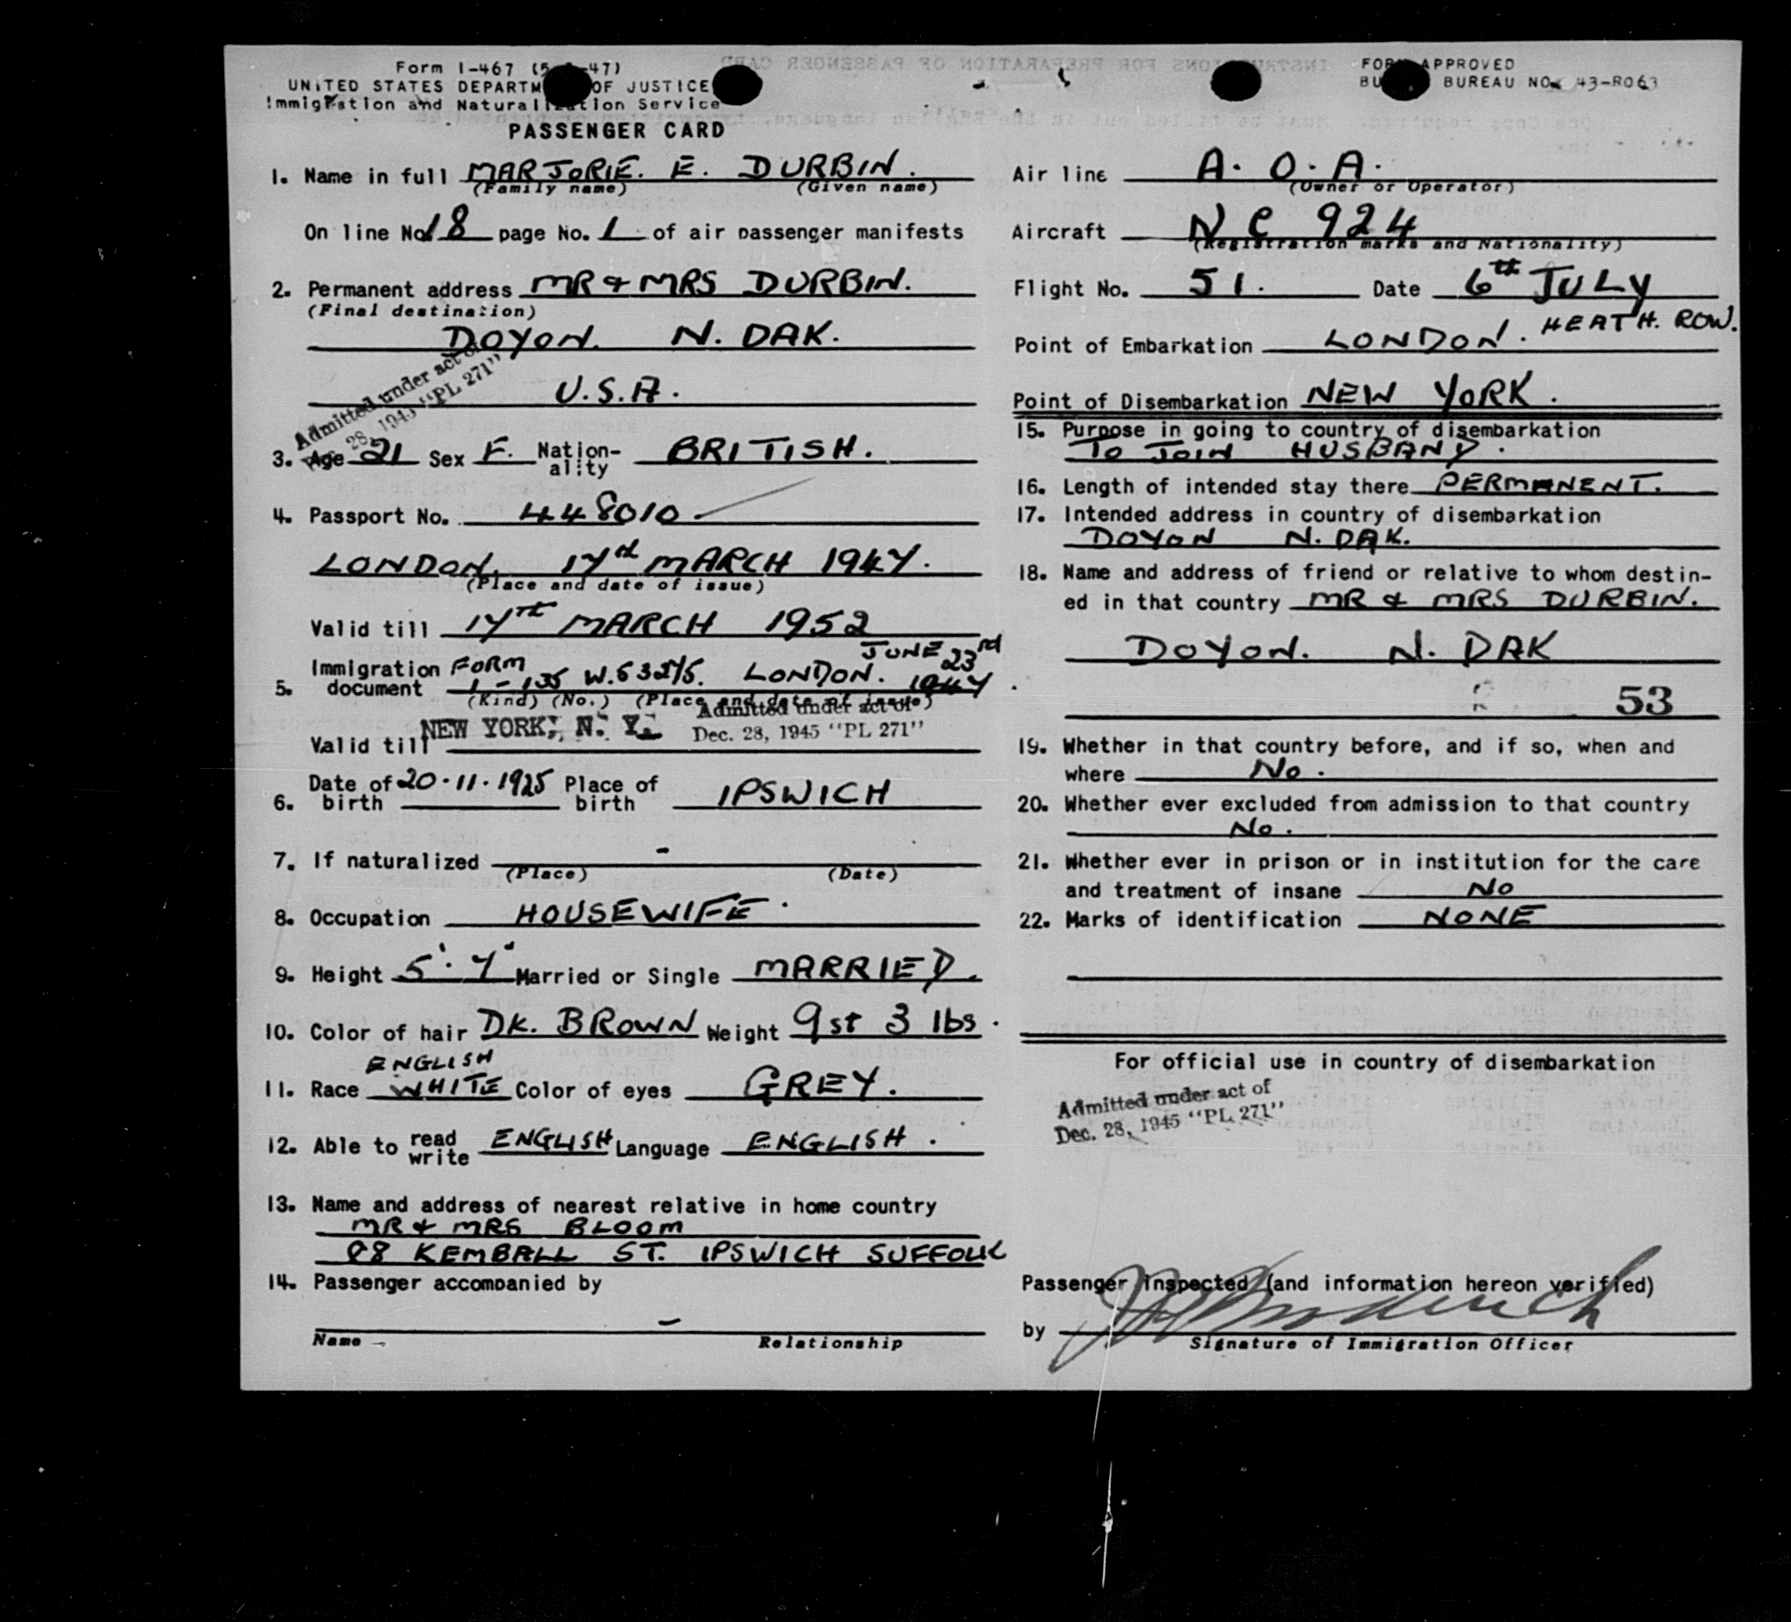 Form I-467 (5 47)
UNITED STATES DEPARTM OF JUSTICE
Immigration and Naturalization Service
PASSENGER CARD
1. Name in full MARJORIE. E. DURBIN.
(Family name) (Given name)
On line No. 18 page No. 1 of air passenger manifests
2. Permanent address MR & MRS DURBIN.
(Final destination)
DOYON. N. DAK.
U.S.A.
Admitted under act of
28, 1945 "PL 271"
3. Age 21 Sex F. Nation-ality BRITISH.
4. Passport No. 448010
LONDON. 17th MARCH 1947.
(Place and date of issue)
Valid till 17th MARCH 1952
5. Immigration document FORM I-135 W. LONDON. JUNE 23rd 1947
(Kind) (No.) (Place and date of issue)
Admitted under act of
Dec. 28, 1945 "PL 271"
Valid till NEW YORK, N. Y.
6. Date of birth 20.11.1925 Place of birth IPSWICH
7. If naturalized -
(Place) (Date)
8. Occupation HOUSEWIFE.
9. Height 5'.7" Married or Single MARRIED.
10. Color of hair DK. BROWN Weight 9st 3 lbs.
11. Race ENGLISH WHITE Color of eyes GREY.
12. Able to read write ENGLISH Language ENGLISH.
13. Name and address of nearest relative in home country
MR & MRS BLOOM
88 KEMBALL ST. IPSWICH SUFFOLK
14. Passenger accompanied by
-
Name Relationship
INSTRUCTIONS FOR PREPARATION OF PASSENGER CARD
FORM APPROVED
BU BUREAU NO. 43-R063
Air line A.O.A.
(Owner or Operator)
Aircraft NC 924
(Registration marks and Nationality)
Flight No. 51. Date 6th JULY
Point of Embarkation LONDON. HEATH. ROW.
Point of Disembarkation NEW YORK.
15. Purpose in going to country of disembarkation
TO JOIN HUSBAND.
16. Length of intended stay there PERMANENT.
17. Intended address in country of disembarkation
DOYON N. DAK.
18. Name and address of friend or relative to whom destin-
ed in that country MR & MRS DURBIN.
DOYON. N. DAK
53
19. Whether in that country before, and if so, when and
where No.
20. Whether ever excluded from admission to that country
No.
21. Whether ever in prison or in institution for the care
and treatment of insane No
22. Marks of identification NONE
For official use in country of disembarkation
Admitted under act of
Dec. 28, 1945 "PL 271"
Passenger Inspected (and information hereon verified)
by
Signature of Immigration Officer